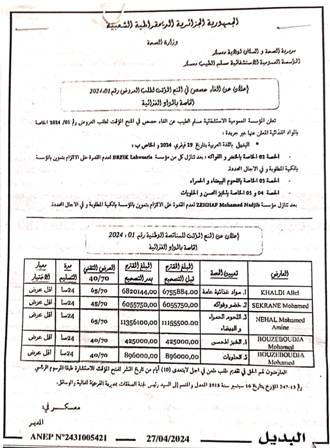 الجمهورية الجزائرية الديمقراطية الشعبية
وزارة الصحة
مديرية الصحة و السكان لولاية معسكر
المؤسسة العمومية الاستشفائية مسلم الطيب معسكر
إعلان عن الغاء حصص في المنح المؤقت لطلب العروض رقم 2024/01
الخاصة بالمواد الغذائية
تعلن المؤسسة العمومية الاستشفائية مسلم الطيب عن الغاء حصص في المنح المؤقت لطلب العروض رقم 01/ 2024 الخاصة
بالمواد الغذائية المعلن عنها عبر جريدة :
البديل باللغة العربية بتاريخ 29 فيفري 2024 و الخاص ب :
الحصة 02 الخاصة بالخضر و الفواكه : بعد تنازل كل من مؤسسة BRZIK Lahouaria لعدم القدرة على الالتزام بتموين المؤسسة
بالكمية المطلوبة و في الآجال المحددة.
الحصة 03 الخاصة باللحوم البيضاء و الحمراء
الحصة 04 و 05 الخاصة بالخبز المحسن و الحلويات
بعد تنازل مؤسسة ZEGHAF Mohamed Nadjib لعدم القدرة على الالتزام بتموين المؤسسة بالكمية المطلوبة و في الآجال المحددة.
إعلان عن المنح المؤقت للمناقصة الوطنية رقم 01 : 2024
الخاصة بالمواد الغذائية
العارض تعيين الحصة المبلغ المقترح قبل التصحيح المبلغ المقترح بعد التصحيح العرض التقني 40/70 مدة التسليم معيار الاختيار
KHALDI Allel 1. مواد غذائية عامة 6755884.00 6820144.00 65/70 24سا أقل عرض
SEKRANE Mohamed 2. خضر وفواكه 6055750.00 6055750.00 45/70 24سا أقل عرض
NEHAL Mohamed Amine 3. اللحوم الحمراء و البيضاء 11155500.00 11356100.00 65/70 24سا أقل عرض
BOUZEBOUDJA Mohamed 4. الخبز المحسن 425000.00 425000.00 40/70 24سا أقل عرض
BOUZEBOUDJA Mohamed 5. الحلويات 896000.00 896000.00 40/70 24سا أقل عرض
المدير
ANEP N°2431005421
27/04/2024
البديل